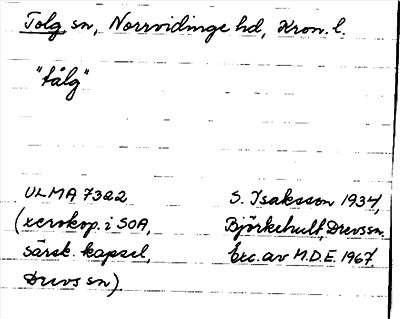 Tolg sn, Norrvidinge hd, Kron. l.
"tålg"
ULMA 7322
(xerokop. i SOA,
särsk. kapsel,
Drevs sn)
S. Isaksson 1934,
Björkehult, Drevs sn.
Exc. av M.D.E. 1967